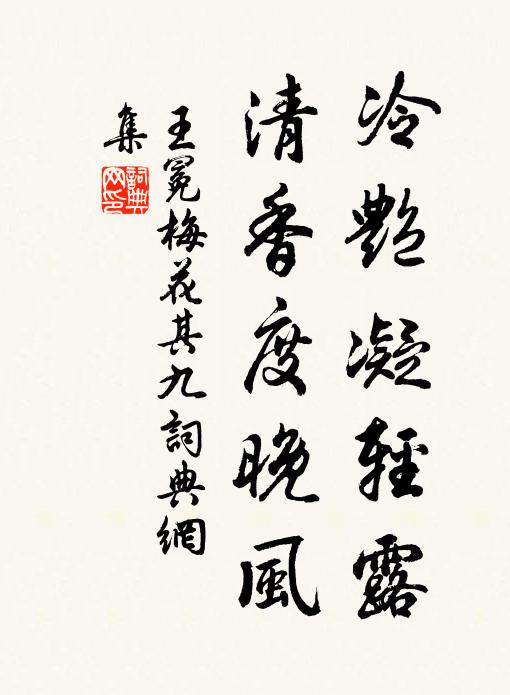 冷艷凝輕露
清香度晚風
王冕梅花其九詞典網
集
詞典
网印